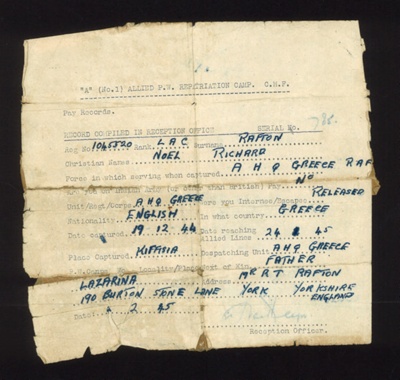 "A" (No.1) ALLIED P.W. REPATRIATION CAMP. C.M.F.
Pay Records.
RECORD COMPILED IN RECEPTION OFFICE SERIAL No. 
Reg No. 1045520 Rank LAC Surname RAFTON
Christian Names NOEL RICHARD
Force in which serving when captured. AHQ GREECE RAF
than British) Pay. NO
Unit/Regt/Corps. AHQ GREECE Were you Internee/Escapee. RELEASED
Nationality ENGLISH In what country GREECE
Date captured. 19 12 44 Date reaching Allied Lines 24 45
Place Captured. KIFFISIA Despatching Unit. AHQ GREECE
of Kin. FATHER
LAZARINA Address MR R T RAFTON
190 BURTON STONE LANE YORK YORKSHIRE ENGLAND
Date: 2 45
Reception Officer.